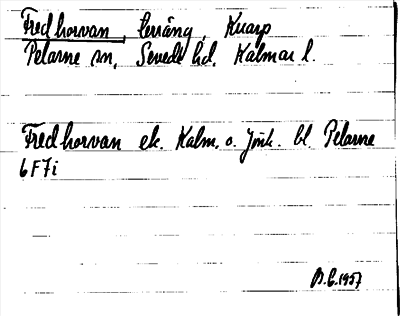 Fredhorvan, terräng, Knarp
Pelarne sn, Sevede hd, Kalmar l.
Fredhorvan ek. Kalm. o. Jönk. bl. Pelarne
6F7i
B.E. 1957